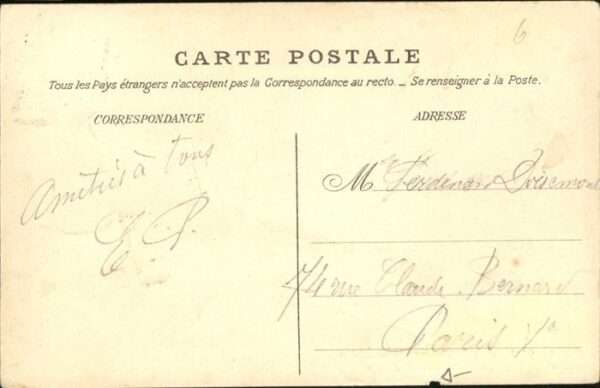 6
CARTE POSTALE
Tous les Pays étrangers n'acceptent pas la Correspondance au recto. _ Se renseigner à la Poste.
CORRESPONDANCE
ADRESSE
Amitiés à tous
E. P.
M. Ferdinand
74 rue Claude Bernard
Paris